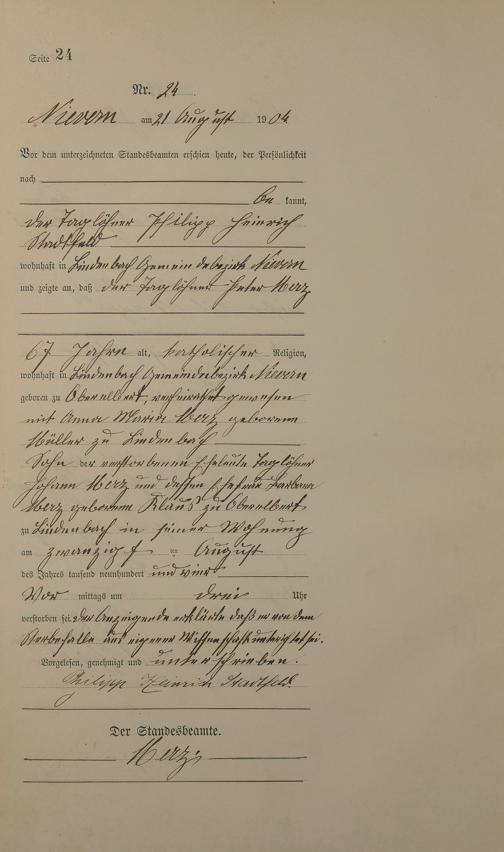 Seite 24
Nr. 24.
Nievern am 21 August 1904
Vor dem unterzeichneten Standesbeamten erschien heute, der Persönlichkeit
nach
be kannt,
der Taglöhner Philipp Heinrich
Stadtfeld
wohnhaft in Lindenbach Gemeindebezirk Nievern
und zeigte an, daß der Taglöhner Peter Merz
67 Jahren alt, katholischer Religion,
wohnhaft in Lindenbach Gemeindebezirk Nievern
geboren zu Oberelbert, verheirathet gewesen
mit Anna Maria Merz geborene
Müller zu Lindenbach
Sohn der verstorbenen Eheleute Taglöhner
Johann Merz und dessen Ehefrau Barbara
Merz geborene Klaus zu Oberelbert
zu Lindenbach in seiner Wohnung
am zwanzigst en August
des Jahres tausend neunhundert und vier
Vor mittags um drei Uhr
verstorben sei. der Anzeigende erklärte daß er von dem
Sterbefalle aus eigener Wissenschaft unterrichtet sei.
Vorgelesen, genehmigt und unterschrieben.
Philipp Heinrich Stadtfeld
Der Standesbeamte.
Merz